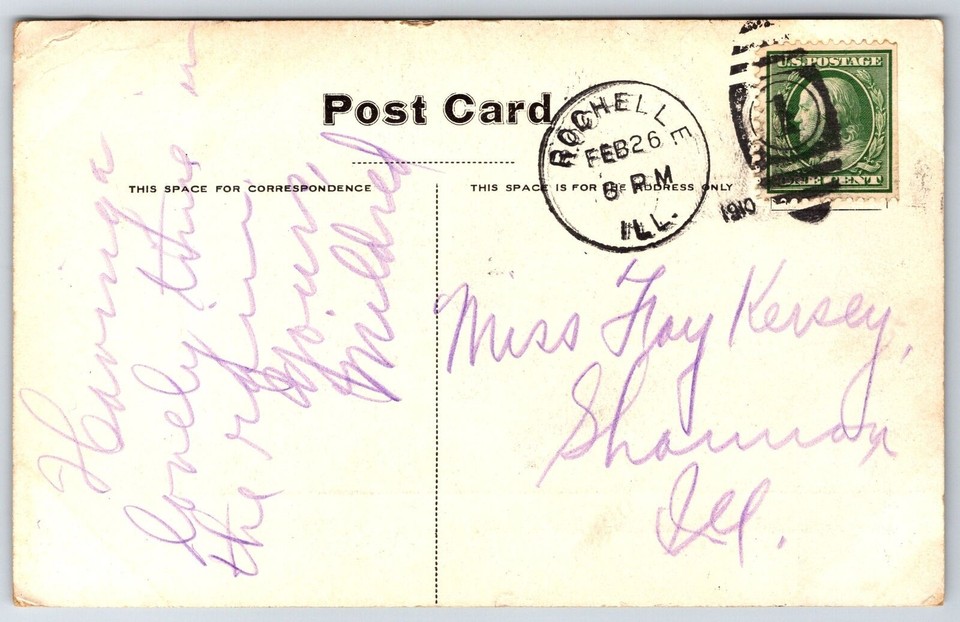 Post Card
THIS SPACE FOR CORRESPONDENCE
THIS SPACE IS FOR THE ADDRESS ONLY
ROCHELLE
FEB 26
8 PM
1910
ILL.
U.S. POSTAGE
1
ONE CENT
Having a
lonely time in
the rain
Yours,
Mildred
Miss Fay Kersey,
Shannon
Ill.